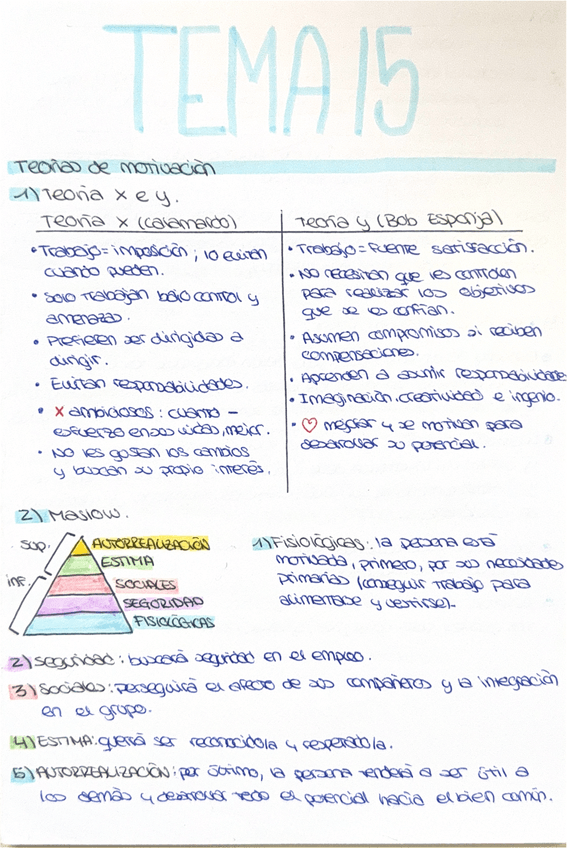 TEMA 15
Teorías de motivación
1) Teoría x e y.
Teoría x (Calamardo)
• Trabajo = imposición; lo evitan
cuando pueden.
• Solo trabajan bajo control y
amenazas.
• Prefieren ser dirigidos a
dirigir.
• Evitan responsabilidades.
• X ambiciosos: cuanto -
esfuerzo en sus vidas, mejor.
• No les gustan los cambios
y buscan su propio interés.
Teoría y (Bob Esponja)
• Trabajo = fuente satisfacción.
• No necesitan que les controlen
para realizar los objetivos
que se les confían.
• Asumen compromisos si reciben
compensaciones.
• Aprenden a asumir responsabilidades
• Imaginación, creatividad e ingenio.
• ♡ mejorar y se motivan para
desarrollar su potencial.
2) Maslow.
sup.
inf.
AUTORREALIZACIÓN
ESTIMA
SOCIALES
SEGURIDAD
FISIOLÓGICAS
1) Fisiológicas: la persona está
motivada, primero, por sus necesidades
primarias (conseguir trabajo para
alimentarse y vestirse).
2) Seguridad: buscará seguridad en el empleo.
3) Sociales: perseguirá el afecto de sus compañeros y la integración
en el grupo.
4) ESTIMA: querrá ser reconocido/a y respetado/a.
5) AUTORREALIZACIÓN: por último, la persona tenderá a ser útil a
los demás y desarrollar todo el potencial hacia el bien común.